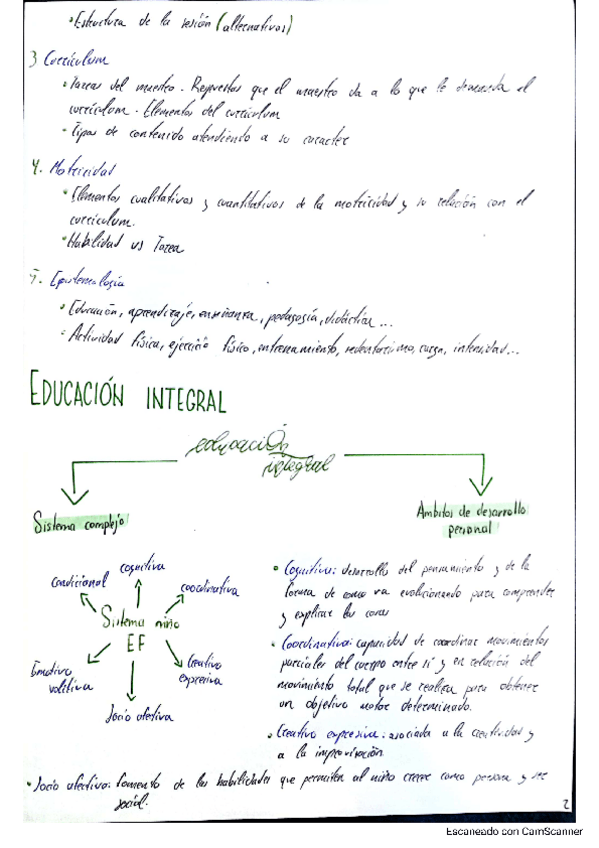 • Estructura de la sesión (alternativas)
3 Currículum
• Tareas del maestro. Repuestas que el maestro da a lo que le demanda el
currículum. Elementos del currículum
• Tipos de contenido atendiendo a su carácter
4. Motricidad
• Elementos cualitativos y cuantitativos de la motricidad y su relación con el
currículum.
• Habilidad vs Tarea
5. Epistemología
• Educación, aprendizaje, enseñanza, pedagogía, didáctica ...
• Actividad física, ejercicio físico, entrenamiento, sedentarismo, carga, intensidad...
EDUCACIÓN INTEGRAL
educación
integral
Sistema complejo
Ámbitos de desarrollo
personal
cognitiva
condicional
coordinativa
Sistema niño
EF
Emotivo
volitiva
Creativo
expresiva
Socio afectiva
• Cognitiva: desarrollo del pensamiento y de la
forma de como va evolucionando para comprender
y explicar las cosas
• Coordinativa: capacidad de coordinar movimientos
parciales del cuerpo entre sí y en relación del
movimiento total que se realiza para obtener
un objetivo motor determinado.
• Creativo expresiva: asociada a la creatividad y
a la improvisación.
• Socio afectiva: fomento de las habilidades que permiten al niño crecer como persona y ser
social.
2
Escaneado con CamScanner